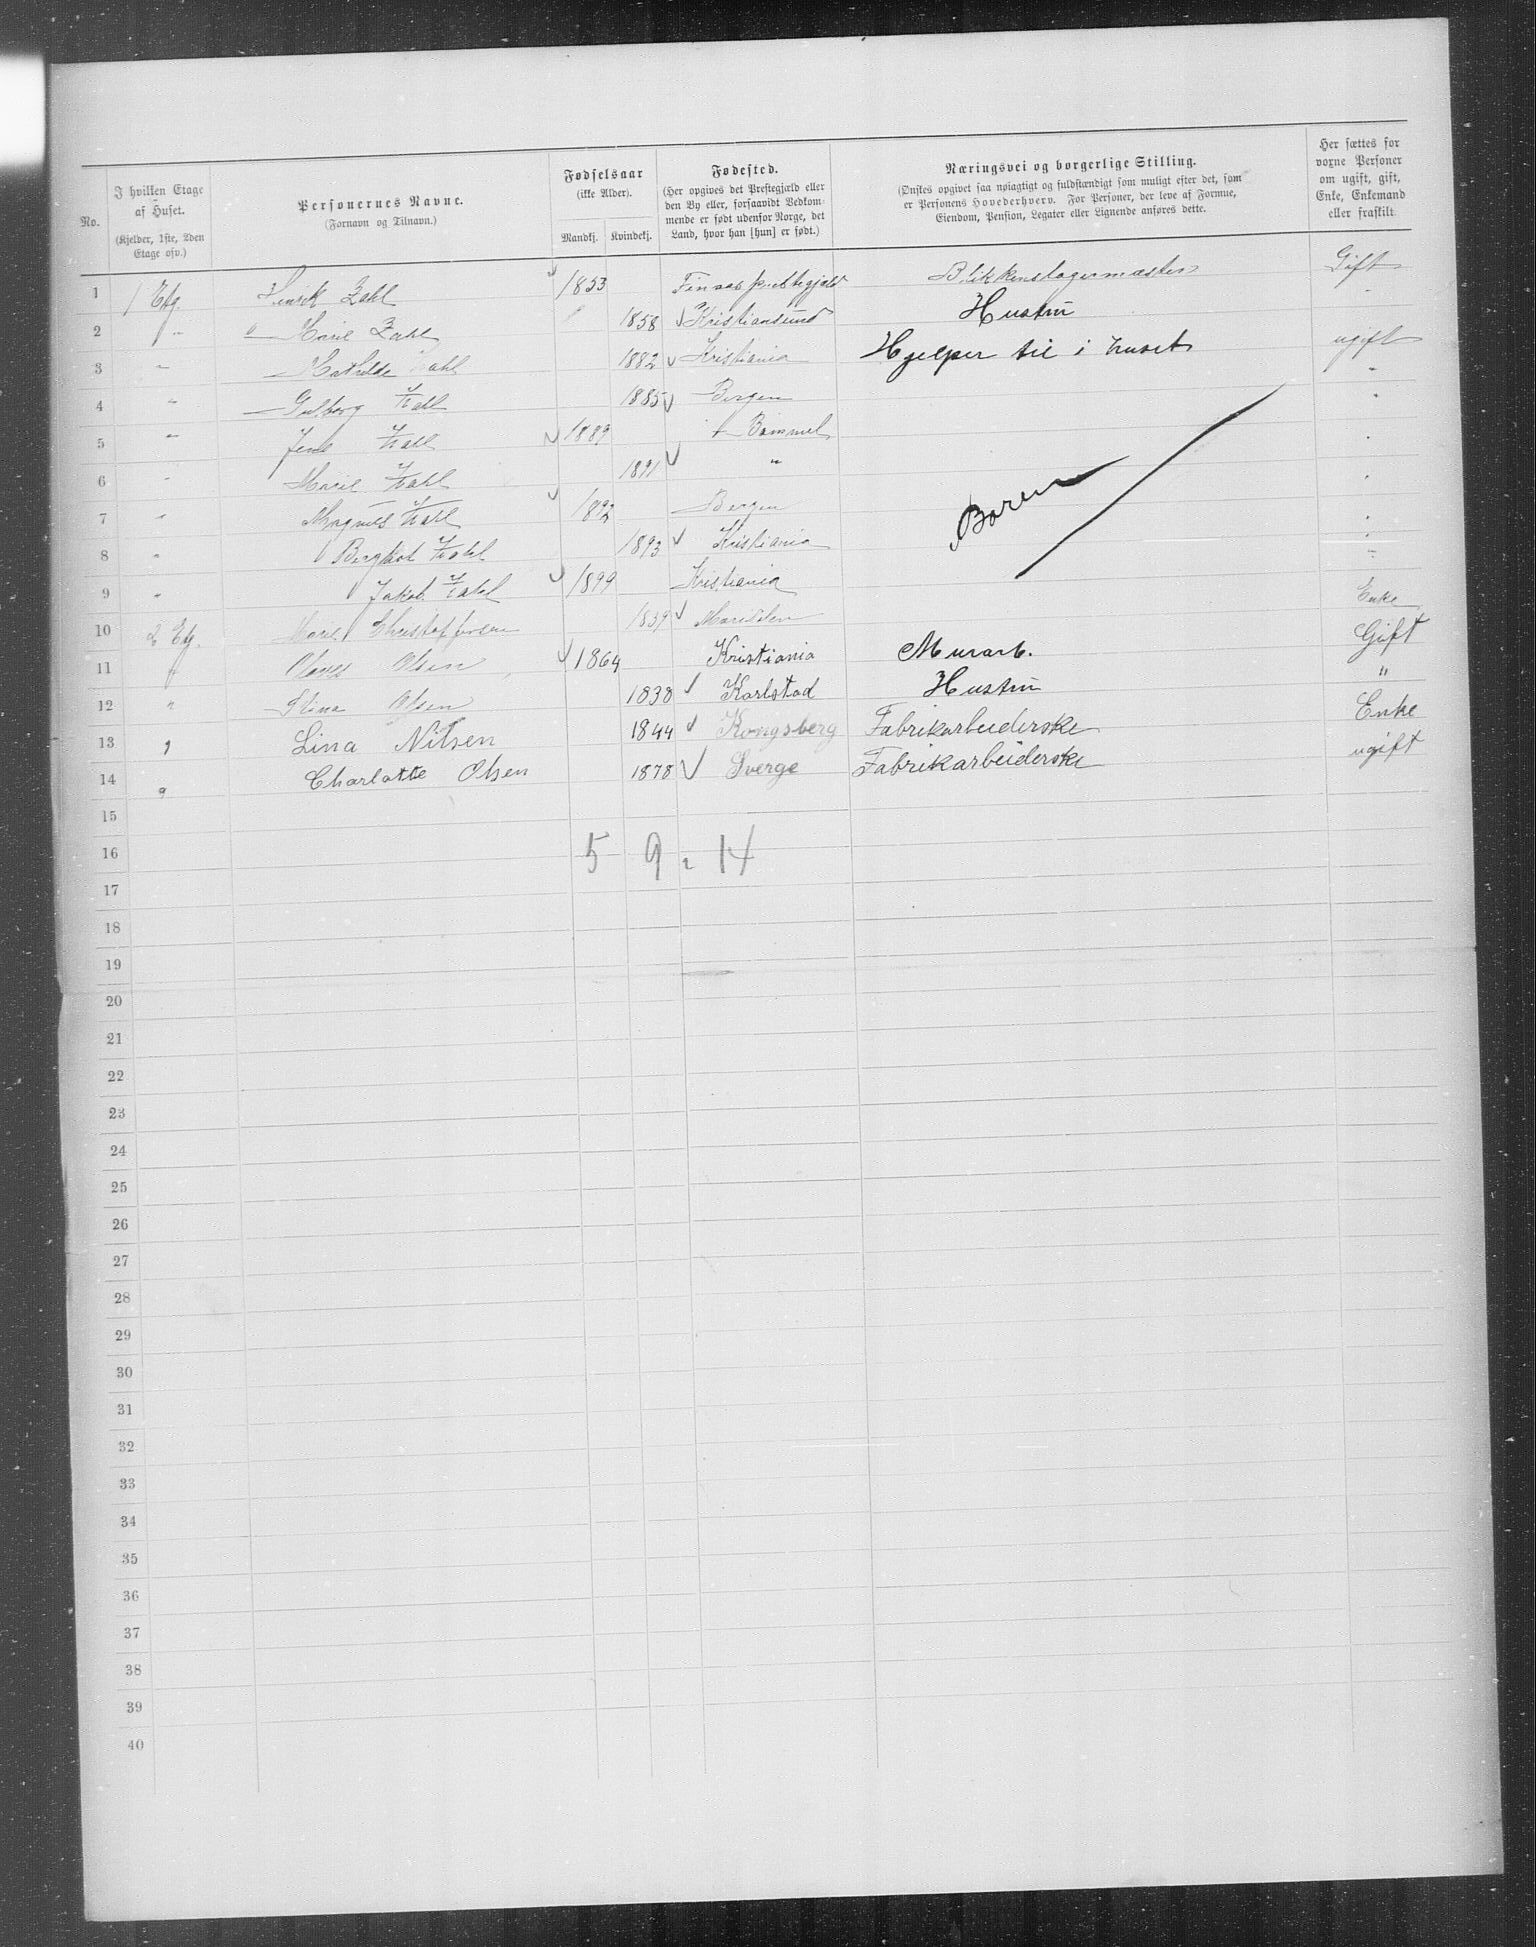 No. | I hvilken Etage af Huset. (Kjelder, 1ste, 2den Etage osv.) | Personernes Navne. (Fornavn og Tilnavn.) | Fødselsaar (ikke Alder). Mandkj. Kvindekj. | Fødested. (Her opgives det Prestegjæld eller den By eller, forsaavidt Vedkommende er født udenfor Norge, det Land, hvor han [hun] er født.) | Næringsvei og borgerlige Stilling. (Ønskes opgivet saa nøiagtigt og fuldstændigt som muligt efter det, som er Personens Hovederhverv. For Personer, der leve af Formue, Eiendom, Pension, Legater eller Lignende anføres dette. | Her sættes for voxne Personer om ugift, gift, Enke, Enkemand eller fraskilt.
1 1 Etg. Henrik Zahl 1853 Finnas Blikkenslagermæster Gift
2 " Marie Zahl 1858 Kristiansund Hustru "
3 " Mathilde Zahl 1882 Kristiania Hjelper til i huset ugift
4 " Gulborg Zahl 1885 Bergen "
5 " Jens Zahl 1889 Bømmel "
6 " Marie Zahl 1891 " "
7 " Magnus Zahl 1892 Bergen Boren "
8 " Bergliot Zahl 1893 Kristiania "
9 " Jakob Zahl 1899 Kristiania "
10 2 Etg. Marie Christoffersen 1839 Enke
11 " Olsen 1864 Kristiania Murarb. Gift
12 " Stina Olsen 1838 Karlstad Hustru "
13 " Lina Nilsen 1844 Kongsberg Fabrikarbeiderske Enke
14 " Charlotte Olsen 1878 Sverge Fabrikarbeiderske ugift
15
16 5 9 = 14
17
18
19
20
21
22
23
24
25
26
27
28
29
30
31
32
33
34
35
36
37
38
39
40